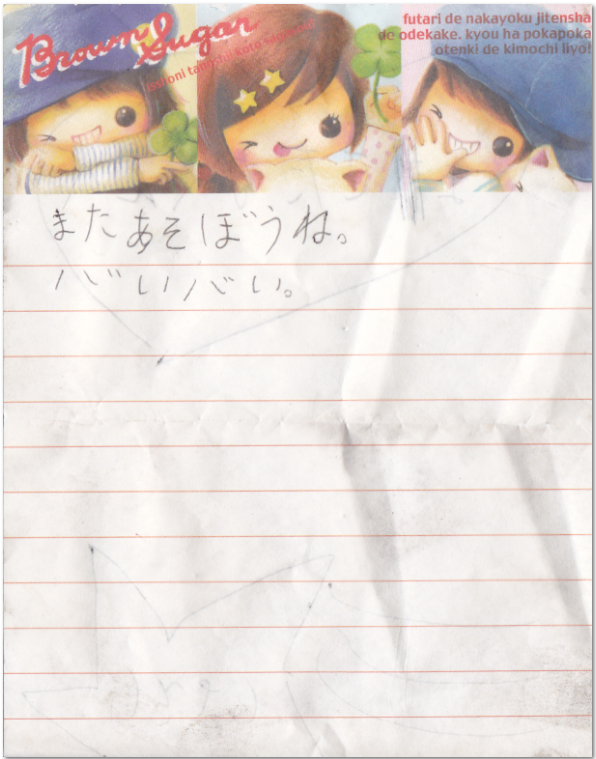 Brown Sugar
futari de nakayoku jitensha
de odekake. kyou ha pokapoka
otenki de kimochi iiyo!
またあそぼうね。
バいバい。